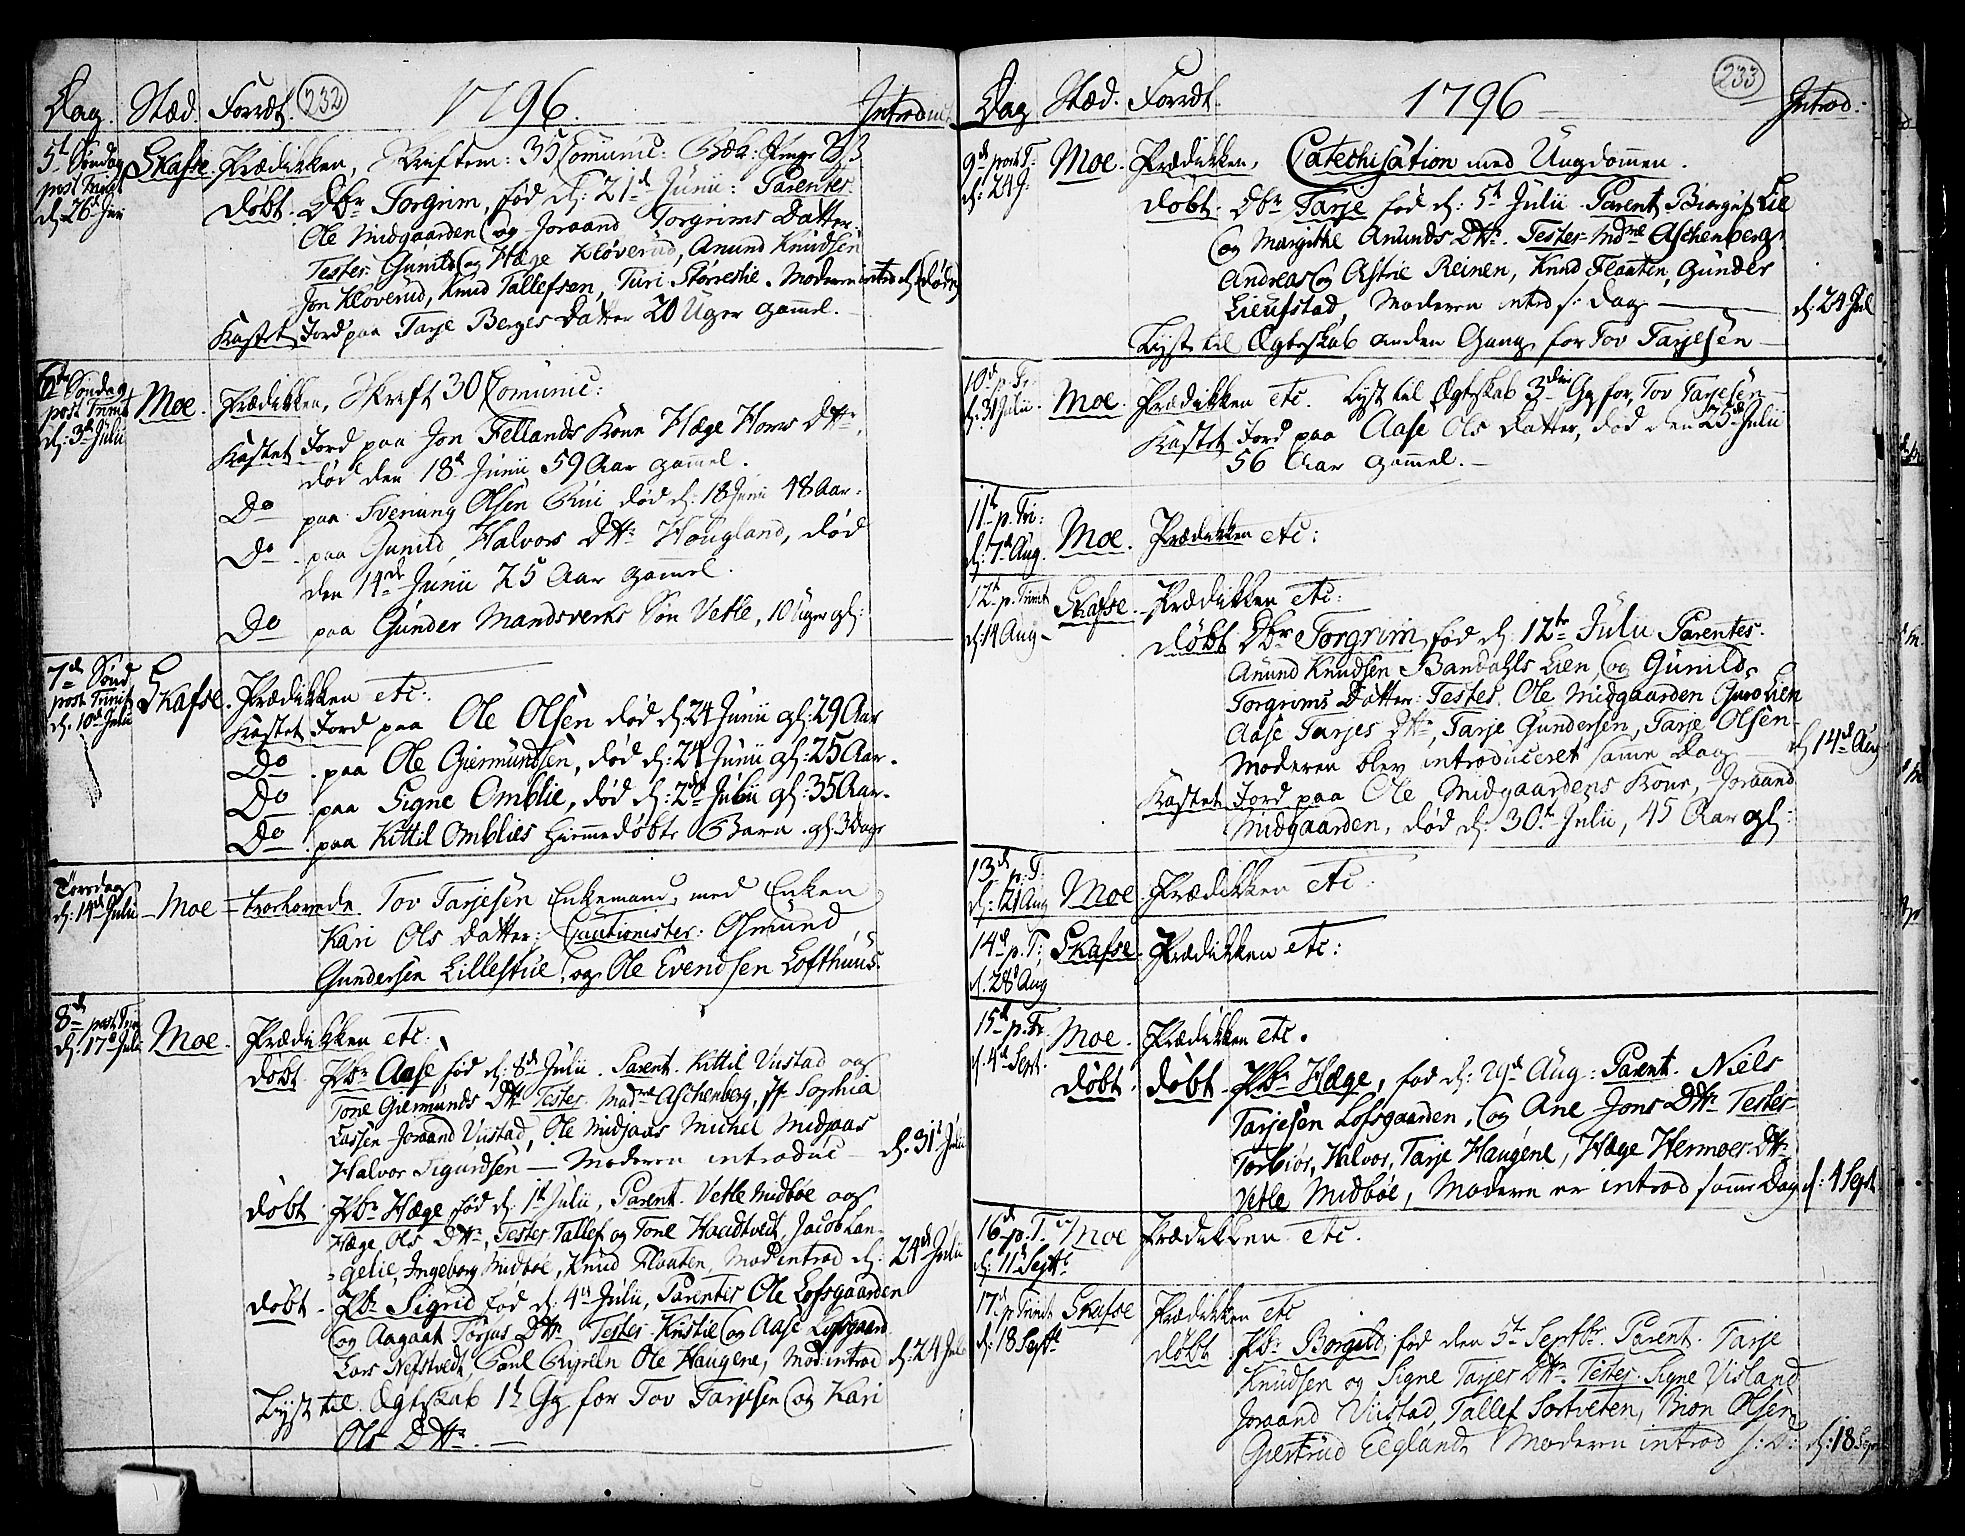 Dag. Stæd. Forrdt. 232 1796. Introduc.
5t Søndag Skafse. Prædikken, Skriftem: 35 Comunic:
post Trinit døbt. Dbr Torgrim, fød d: 21d Junii: Parentes
d: 26d Juni Ole Midgaarden og Joraand Torgrims Datter.
Tester Gunild og Hæge Kløverud, Anund Knudsen
Jon Kloverud, Knud Tallefsen, Turi Storrestie. Moderen introd d:
Kastet Jord paa Tarje Berges Datter 20 Uger gammel.
6te Søndag
post Trinit Moe. Prædikken, Skrift 30 Comunic:
d: 3d Julii Kastet Jord paa Jon Fellands Kone Hæge Hovs Dttr,
død den 18d Junii 59 Aar gammel.
Do paa Sveinung Olsen død d: 18 Juni 48 Aar.
Do paa Gunild Halvors Dttr Hougland, død
den 14de Junii 25 Aar gamel.
Do paa Gunder Mandsverks Søn Vetle, 10 Uger gl:
7d Sønd
post Trinit Skafse. Prædikken etc:
d: 10d Julii Kastet Jord paa Ole Olsen død d: 24 Junii gl: 29 Aar
Do paa Ole Giermundsen, død d: 24 Junii gl: 25 Aar.
Do paa Signe Omblie, død d: 2de Julii gl: 35 Aar.
Do paa Kittil Omblies hiemmedøbte Barn gl: 3 Dage
Torsdag
d: 14d Julii Moe trorhovede Tov Tarjesen Enkemand, med Enken
Kari Ols Datter: Cautionister: Osmund
Gundersen Lillestue, og Ole Evendsen Lofthuus.
8d post Trin
d: 17d Julii Moe. Prædikken etc:
døbt Pbr Aase fød d: 8d Julii. Parent. Kittil Vustad og
Tone Giermunds Dttr Tester Madme Aschenberg, Jf Sophia
Lassen Joraand Vustad, Ole Midjaas Michel Midjaas
Halvor Sigurdsen — Moderen introduc — d: 31t Julii
døbt Pbr Hæge fød d: 1t Julii, Parent. Vetle Midbøe og
Hæge Ols Dttr, Tester Tallef og Tone Haudtvedt, Jacob Lan-
gelie, Ingeborg Midbøe, Knud Flaaten, Mod introd d: 24d Julii
døbt. Pbr Sigrid fød d: 4d Julii, Parentes Ole Lofsgaarden
og Aagaat Torjus Dttr. Tester Kristie og Aase Lofsgaard
Lars Nefstvedt, Ole Haugene, Mod: introd d: 24 Jul
Lyst til Ægtskab 1t Gg for Tov Tarjesen og Kari
Ols Dttr. —
Dag Stæd. Forrdt. 1796 233 Introd:
9d post T: Moe. Prædikken, Catechisation med Ungdommen.
d: 24 J. døbt. Dbr Tarje fød d: 5t Julii Parent Lie
og Margithe Anunds Dttr. Tester Mdme Aschenberg
Andreas og Astrie Reinen, Knud Flaaten, Gunder
Lieufstad, Moderen introd s: Dag — d: 24 Jul
Lyst til Ægteskab anden Gang for Tov Tarjesen —
10d p. Tr:
d: 31 Julii. Moe. Prædikken etc. Lyst til Ægtskab 3die Gg for, Tov Tarjesen —
Kastet Jord paa Aase Ols Datter, død den 25d Julii
56 Aar gammel. —
11t p. Tri:
d: 7d Aug. Moe. Prædikken etc:
12t p. Trinit Skafse. Prædikken etc:
d: 14 Aug. døbt Dbr Torgrim fød d: 12te Julii Parentes.
Anund Knudsen Bandahls Lien, og Gunild
Torgrims Datter: Testes. Ole Midgaarden Guro Lien
Aase Tarjes Dttr, Tarje Gundersen, Tarje Olsen
Moderen blev introduceret same Dag — d: 14d Aug
Kastet Jord paa Ole Midgaardens Kone, Joraand
Midgaarden, død d: 30t Julii, 45 Aar gl:
13d p. T:
d: 21 Aug Moe. Prædikken etc:
14d p. T; Skafse. Prædikken etc:
d: 28d Aug
15d p. Tr. Moe. Prædikken etc.
d: 4d Sept. døbt. døbt. Pbr Hæge, fød d: 29d Aug: Parent. Niels
Tarjesen Lofsgaarden, og Ane Jons Dttr Tester
Torbiør, Halvor, Tarje Haugene, Hæge Hermoes Dttr
Vetle Midbøe, Modern er introd samme Dag d: 4 Sept
16d p. T. Moe Prædikken etc.
d: 11d Septr
17d p Trinit Skafse Prædikken etc
d: 18 Septr døbt Pbr Borgild, fød den 5t Septbr. Parent. Tarje
Knudsen og Signe Tarjes Dttr. Tester. Signe Visland
Joraand Vustad, Tallef Sortveten, Biøn Olsen
Giertrud Eegland, Moderen introd s: D: d: 18 Sept